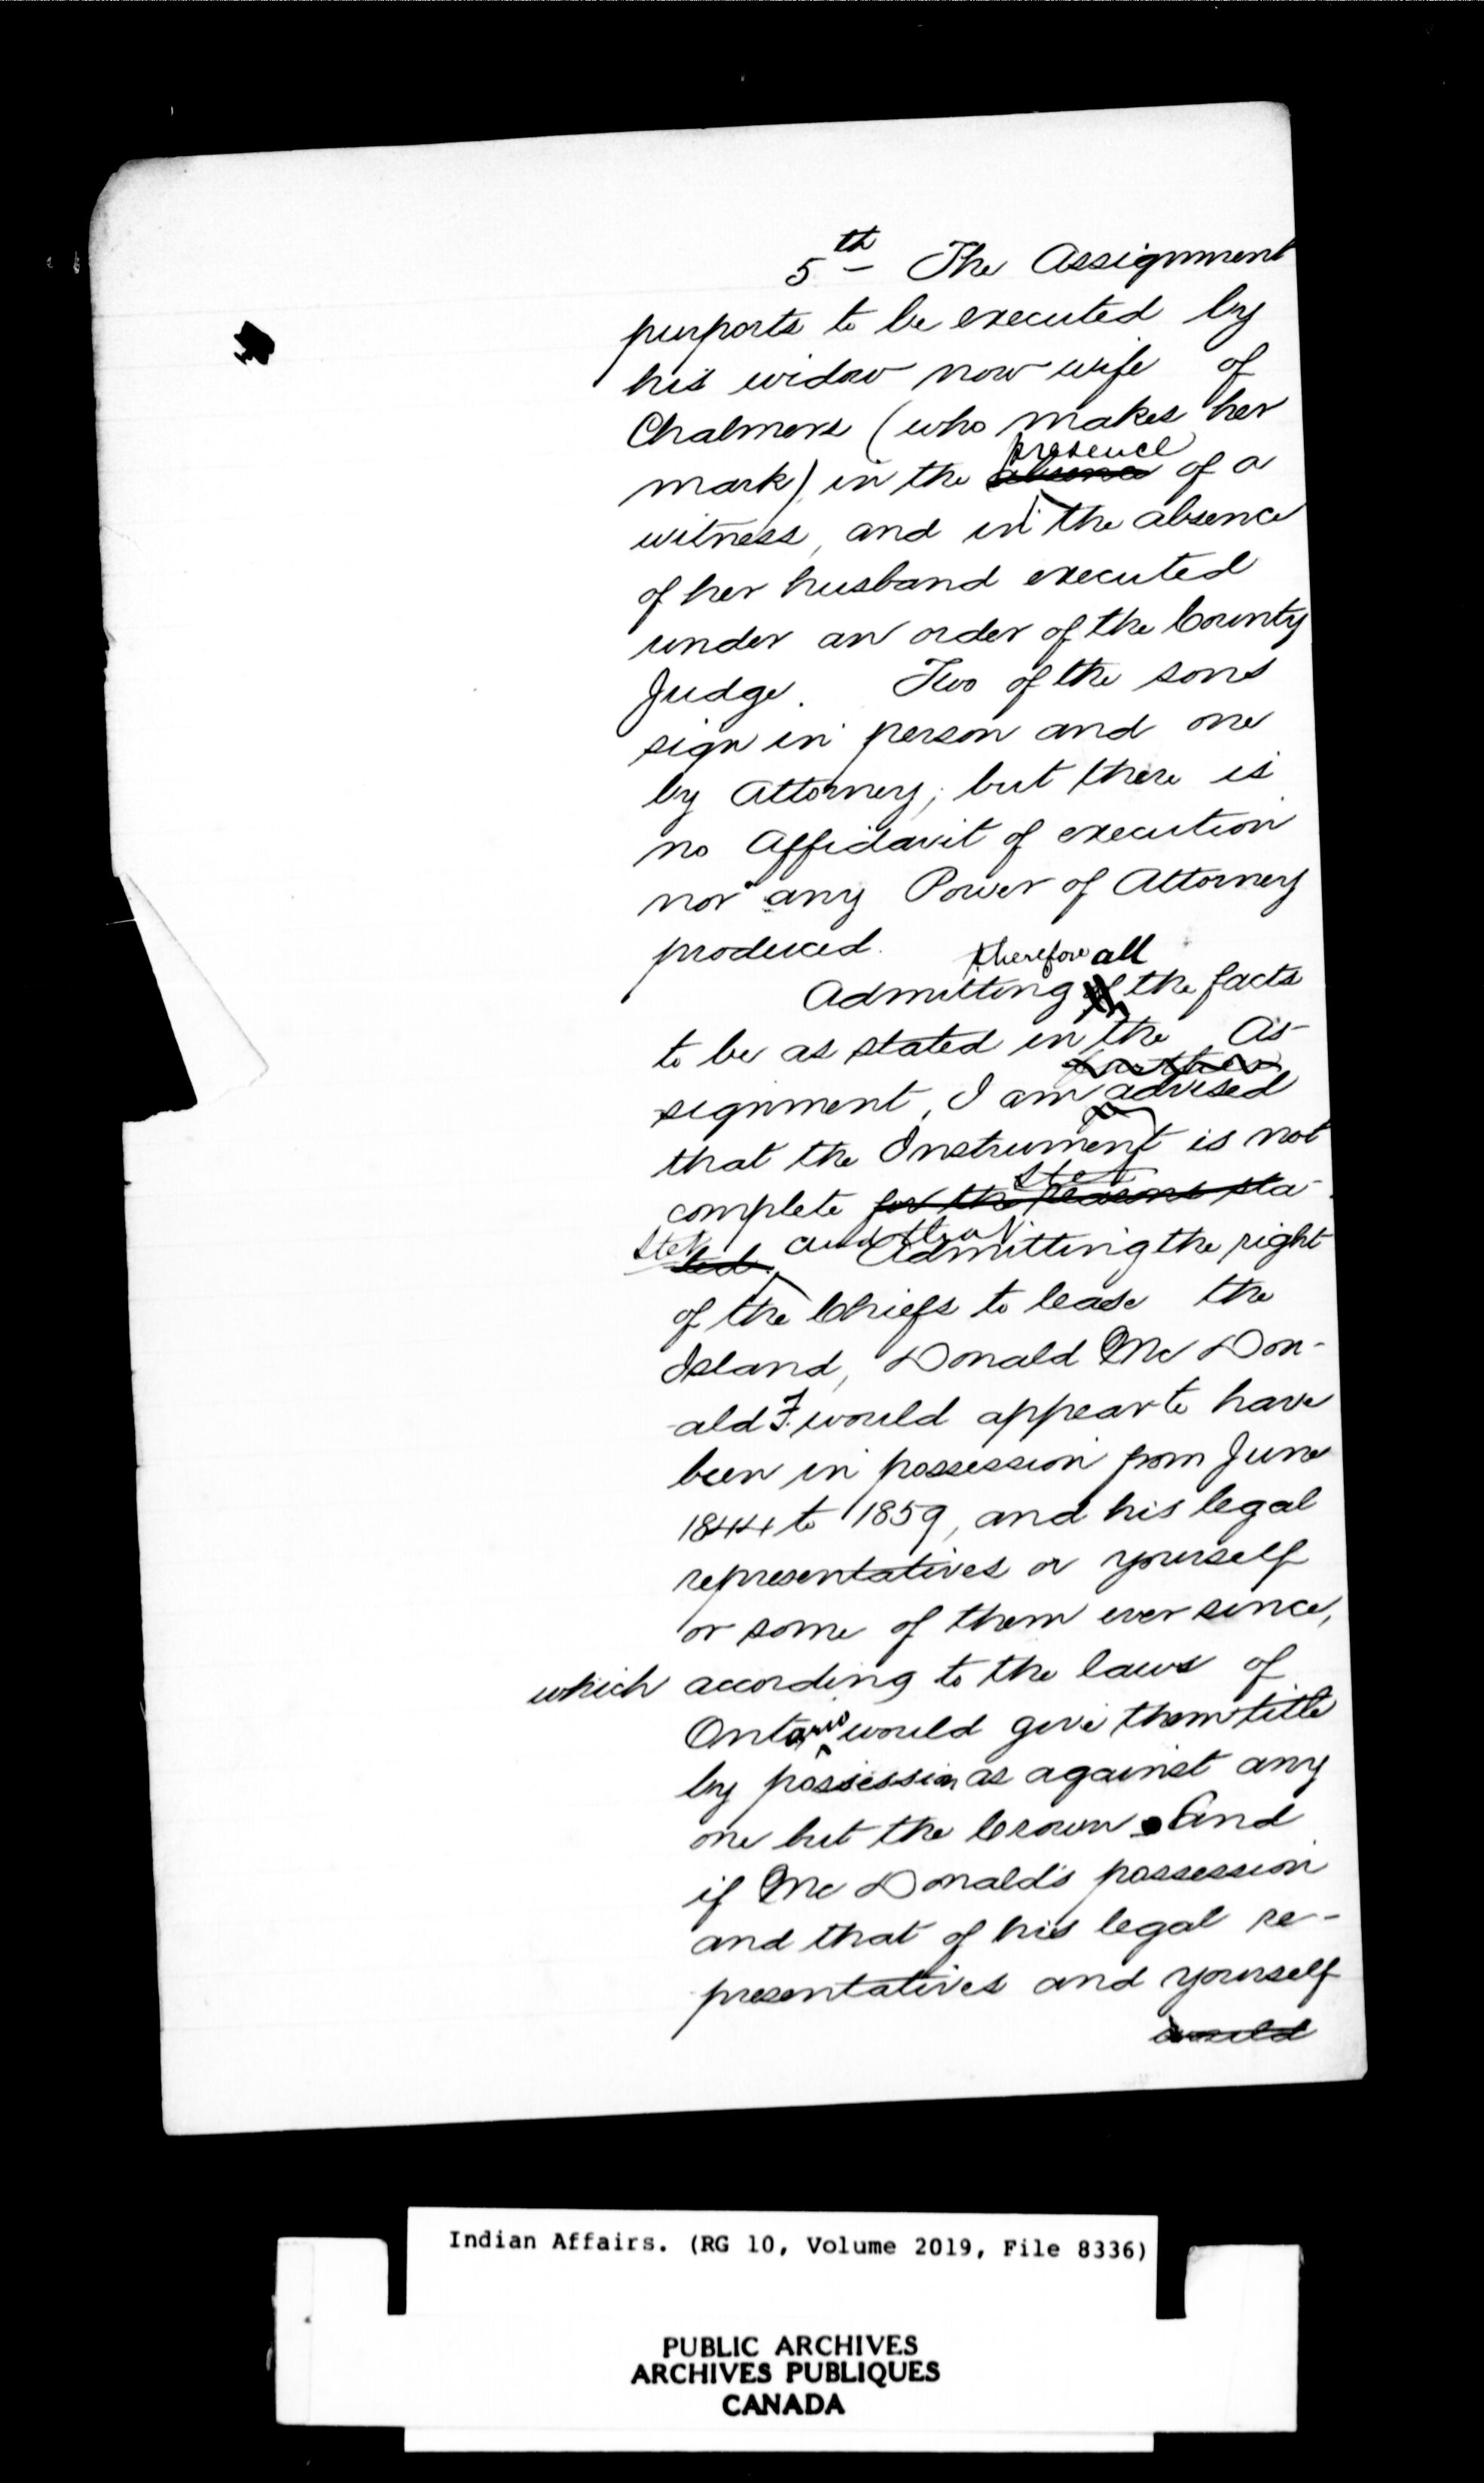 5th The Assignment
purports to be executed by
his widow now wife of
Chalmers (who makes her
presence
mark) in the absence of a
witness, and in the absence
of her husband executed
under an order of the County
Judge. Two of the sons
sign in person and one
by Attorney; but there is
no Affidavit of execution
nor any Power of Attorney
produced.
therefore all
Admitting the facts
to be as stated in the As-
further
signment, I am advised
that the Instrument is not
stet
complete for the reasons sta-
stet and that
ted. Admitting the right
of the Chiefs to lease the
Island, Donald Mc Don-
ald F. would appear to have
been in possession from June
1844 to 1859, and his legal
representatives or yourself
or some of them ever since,
which according to the laws of
Ontario would give them title
by possession as against any
one but the Crown. And
if Mc Donald's possession
and that of his legal re-
presentatives and yourself
would
Indian Affairs. (RG 10, Volume 2019, File 8336)
PUBLIC ARCHIVES
ARCHIVES PUBLIQUES
CANADA